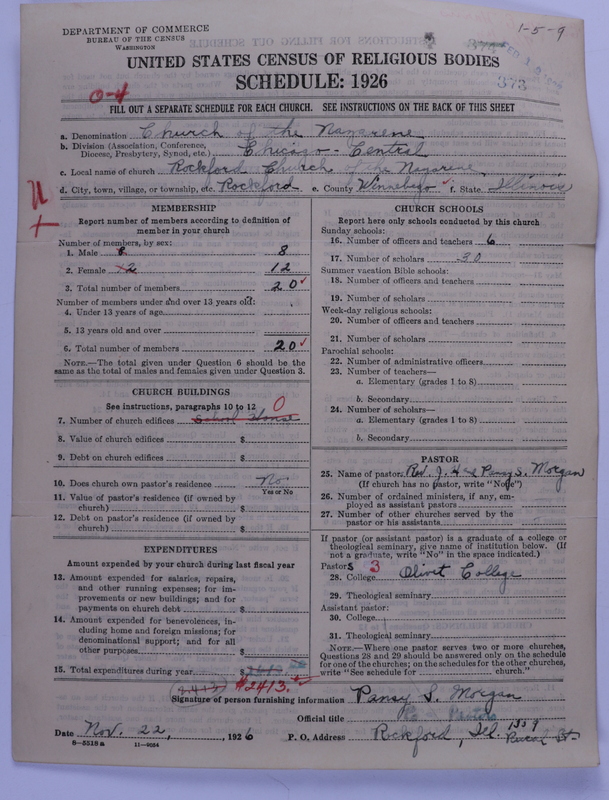 DEPARTMENT OF COMMERCE
BUREAU OF THE CENSUS
WASHINGTON
1-5-9
373
UNITED STATES CENSUS OF RELIGIOUS BODIES
SCHEDULE: 1926
0-4
FILL OUT A SEPARATE SCHEDULE FOR EACH CHURCH. SEE INSTRUCTIONS ON THE BACK OF THIS SHEET
a. Denomination Church of the Nazarene
b. Division (Association, Conference, Diocese, Presbytery, Synod, etc.) Chicago-Central
c. Local name of church Rockford Church of the Nazarene
d. City, town, village, or township, etc. Rockford e. County Winnebago f. State Illinois
MEMBERSHIP
Report number of members according to definition of
member in your church
Number of members, by sex:
1. Male 8 8
2. Female 12 12
3. Total number of members 20
Number of members under and over 13 years old:
4. Under 13 years of age
5. 13 years old and over
6. Total number of members 20
NOTE.—The total given under Question 6 should be the
same as the total of males and females given under Question 3.
CHURCH BUILDINGS
See instructions, paragraphs 10 to 12 0
7. Number of church edifices School House
8. Value of church edifices $
9. Debt on church edifices $
10. Does church own pastor's residence No
Yes or No
11. Value of pastor's residence (if owned by
church) $
12. Debt on pastor's residence (if owned by
church) $
EXPENDITURES
Amount expended by your church during last fiscal year
13. Amount expended for salaries, repairs,
and other running expenses; for im-
provements or new buildings; and for
payments on church debt $
14. Amount expended for benevolences, in-
cluding home and foreign missions; for
denominational support; and for all
other purposes $
15. Total expenditures during year $
(2413) #2413.
CHURCH SCHOOLS
Report here only schools conducted by this church
Sunday schools:
16. Number of officers and teachers 6
17. Number of scholars 30
Summer vacation Bible schools:
18. Number of officers and teachers
19. Number of scholars
Week-day religious schools:
20. Number of officers and teachers
21. Number of scholars
Parochial schools:
22. Number of administrative officers
23. Number of teachers—
a. Elementary (grades 1 to 8)
b. Secondary
24. Number of scholars—
a. Elementary (grades 1 to 8)
b. Secondary
PASTOR
25. Name of pastor Rev. J. H. and Pansy S. Morgan
(If church has no pastor, write "None")
26. Number of ordained ministers, if any, em-
ployed as assistant pastors
27. Number of other churches served by the
pastor or his assistants
If pastor (or assistant pastor) is a graduate of a college or
theological seminary, give name of institution below. (If
not a graduate, write "No" in the space indicated.)
Pastors 3
28. College Olivet College
29. Theological seminary
Assistant pastor:
30. College
31. Theological seminary
NOTE.—Where one pastor serves two or more churches,
Questions 28 and 29 should be answered only on the schedule
for one of the churches; on the schedules for the other churches,
write "See schedule for church."
Signature of person furnishing information Pansy S. Morgan
Official title
Date Nov. 22, 1926 P. O. Address Rockford, Ill. 1559 Rural St.
8-5218a 11-9054